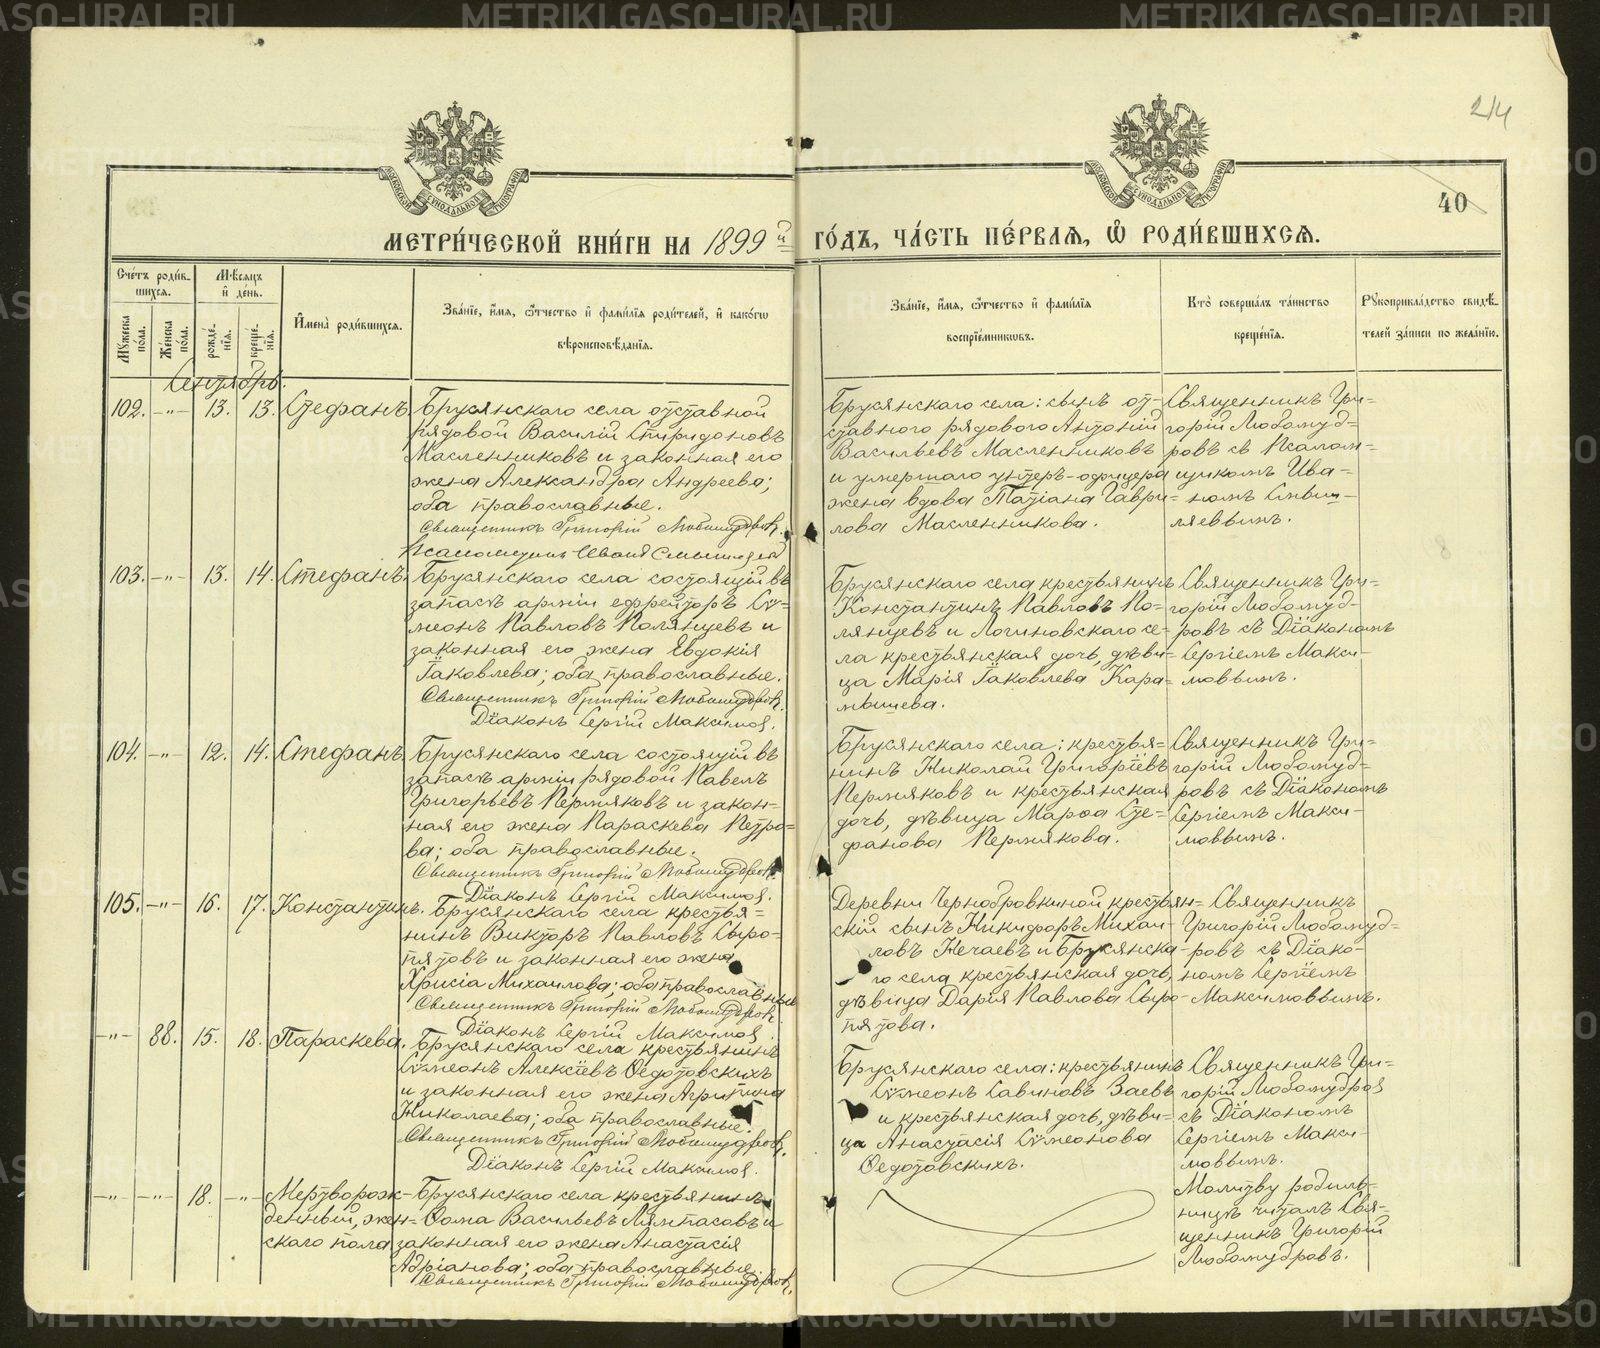 214
40
МЕТРИ́ЧЕСКОЙ КНИ́ГИ НА 1899 й
ГО́ДЪ, ЧА́СТЬ ПЕ́РВАЯ, Ѡ РОДИ́ВШИХСЯ.
Сче́тъ роди́в-
шихся.
Мѣсяцъ
и де́нь.
Му́жеска по́ла.
Же́нска по́ла.
рожде́-
нїя.
креще́-
нїя.
Имена̀ роди́вшихся.
Зва́нїе, и́мя, о́тчество и фами́лїя роди́телей, и како́гѡ
вѣроисповѣ́данїя.
Зва́нїе, и́мя, о́тчество и фами́лїя
воспрїе́мниковъ.
Кто̀ соверша́лъ та́инство
креще́нїя.
Рукоприкла́дство свидѣ́-
телей за́писи по жела́нїю.
Сентябрь.
102. -"- 13. 13. Стефанъ
Брусянскаго села отставной
рядовой Василій Спиридоновъ
Масленниковъ и законная его
жена Александра Андреева;
оба православные.
Священникъ Григорій Любомудровъ.
Псаломщикъ Иванъ Смышляевъ
Брусянскаго села: сынъ от-
ставного рядового Антоній
Васильевъ Масленниковъ
и умершаго унтеръ-офицера
жена вдова Татіана Гаври-
лова Масленникова.
Священникъ Гри-
горій Любомуд-
ровъ съ Псалом-
щикомъ Ива-
номъ Смыш-
ляевымъ.
103. -"- 13. 14. Стефанъ.
Брусянскаго села состоящій въ
запасѣ арміи ефрейторъ Сѵ-
меонъ Павловъ Полянцевъ и
законная его жена Евдокія
Іаковлева; оба православные.
Священникъ Григорій Любомудровъ.
Діаконъ Сергій Максимов.
Брусянскаго села крестьянинъ
Константинъ Павловъ По-
лянцевъ и Логиновскаго се-
ла крестьянская дочь, дѣви-
ца Марія Іаковлева Кара-
мышева.
Священникъ Гри-
горій Любомуд-
ровъ съ Діакономъ
Сергіемъ Макси-
мовымъ.
104. -"- 12. 14. Стефанъ
Брусянскаго села состоящій въ
запасѣ арміи рядовой Павелъ
Григорьевъ Пермяковъ и закон-
ная его жена Параскева Петро-
ва; оба православные.
Священникъ Григорій Любомудровъ.
Діаконъ Сергій Максимов.
Брусянскаго села: крестья-
нинъ Николай Григоріевъ
Пермяковъ и крестьянская
дочь, дѣвица Марѳа Сте-
фанова Пермякова.
Священникъ Гри-
горій Любомуд-
ровъ съ Діакономъ
Сергіемъ Макси-
мовымъ.
105. -"- 16. 17. Константинъ.
Брусянскаго села крестья-
нинъ Викторъ Павловъ Сыро-
пятовъ и законная его жена
Хрисія Михаилова; оба православные
Священникъ Григорій Любомудровъ.
Діаконъ Сергій Максимов.
Деревни Чернобровкиной крестьян-
скій сынъ Никифоръ Михаи-
ловъ Нечаевъ и Брусянска-
го села крестьянская дочь,
дѣвица Дарія Павлова Сыро-
пятова.
Священникъ
Григорій Любомуд-
ровъ съ Діако-
номъ Сергіемъ
Максимовымъ.
-"- 88. 15. 18. Параскева.
Брусянскаго села крестьянинъ
Сѵмеонъ Алексіевъ Ѳедотовскихъ
и законная его жена Агрипина
Николаева; оба православные.
Священникъ Григорій Любомудровъ.
Діаконъ Сергій Максимов.
Брусянскаго села: крестьянинъ
Сѵмеонъ Савиновъ Заевъ
и крестьянская дочь, дѣви-
ца Анастасія Сѵмеонова
Ѳедотовскихъ.
Священникъ Гри-
горій Любомудров
съ Діакономъ
Сергіемъ Макси-
мовымъ.
-"- -"- 18. -"- Мертворож-
денный, жен-
скаго пола
Брусянскаго села крестьянинъ
Ѳома Васильевъ Лямпасовъ и
законная его жена Анастасія
Адріанова; оба православные.
Священникъ Григорій Любомудровъ.
Молитву родиль-
ницѣ читалъ Свя-
щенникъ Григорій
Любомудровъ.